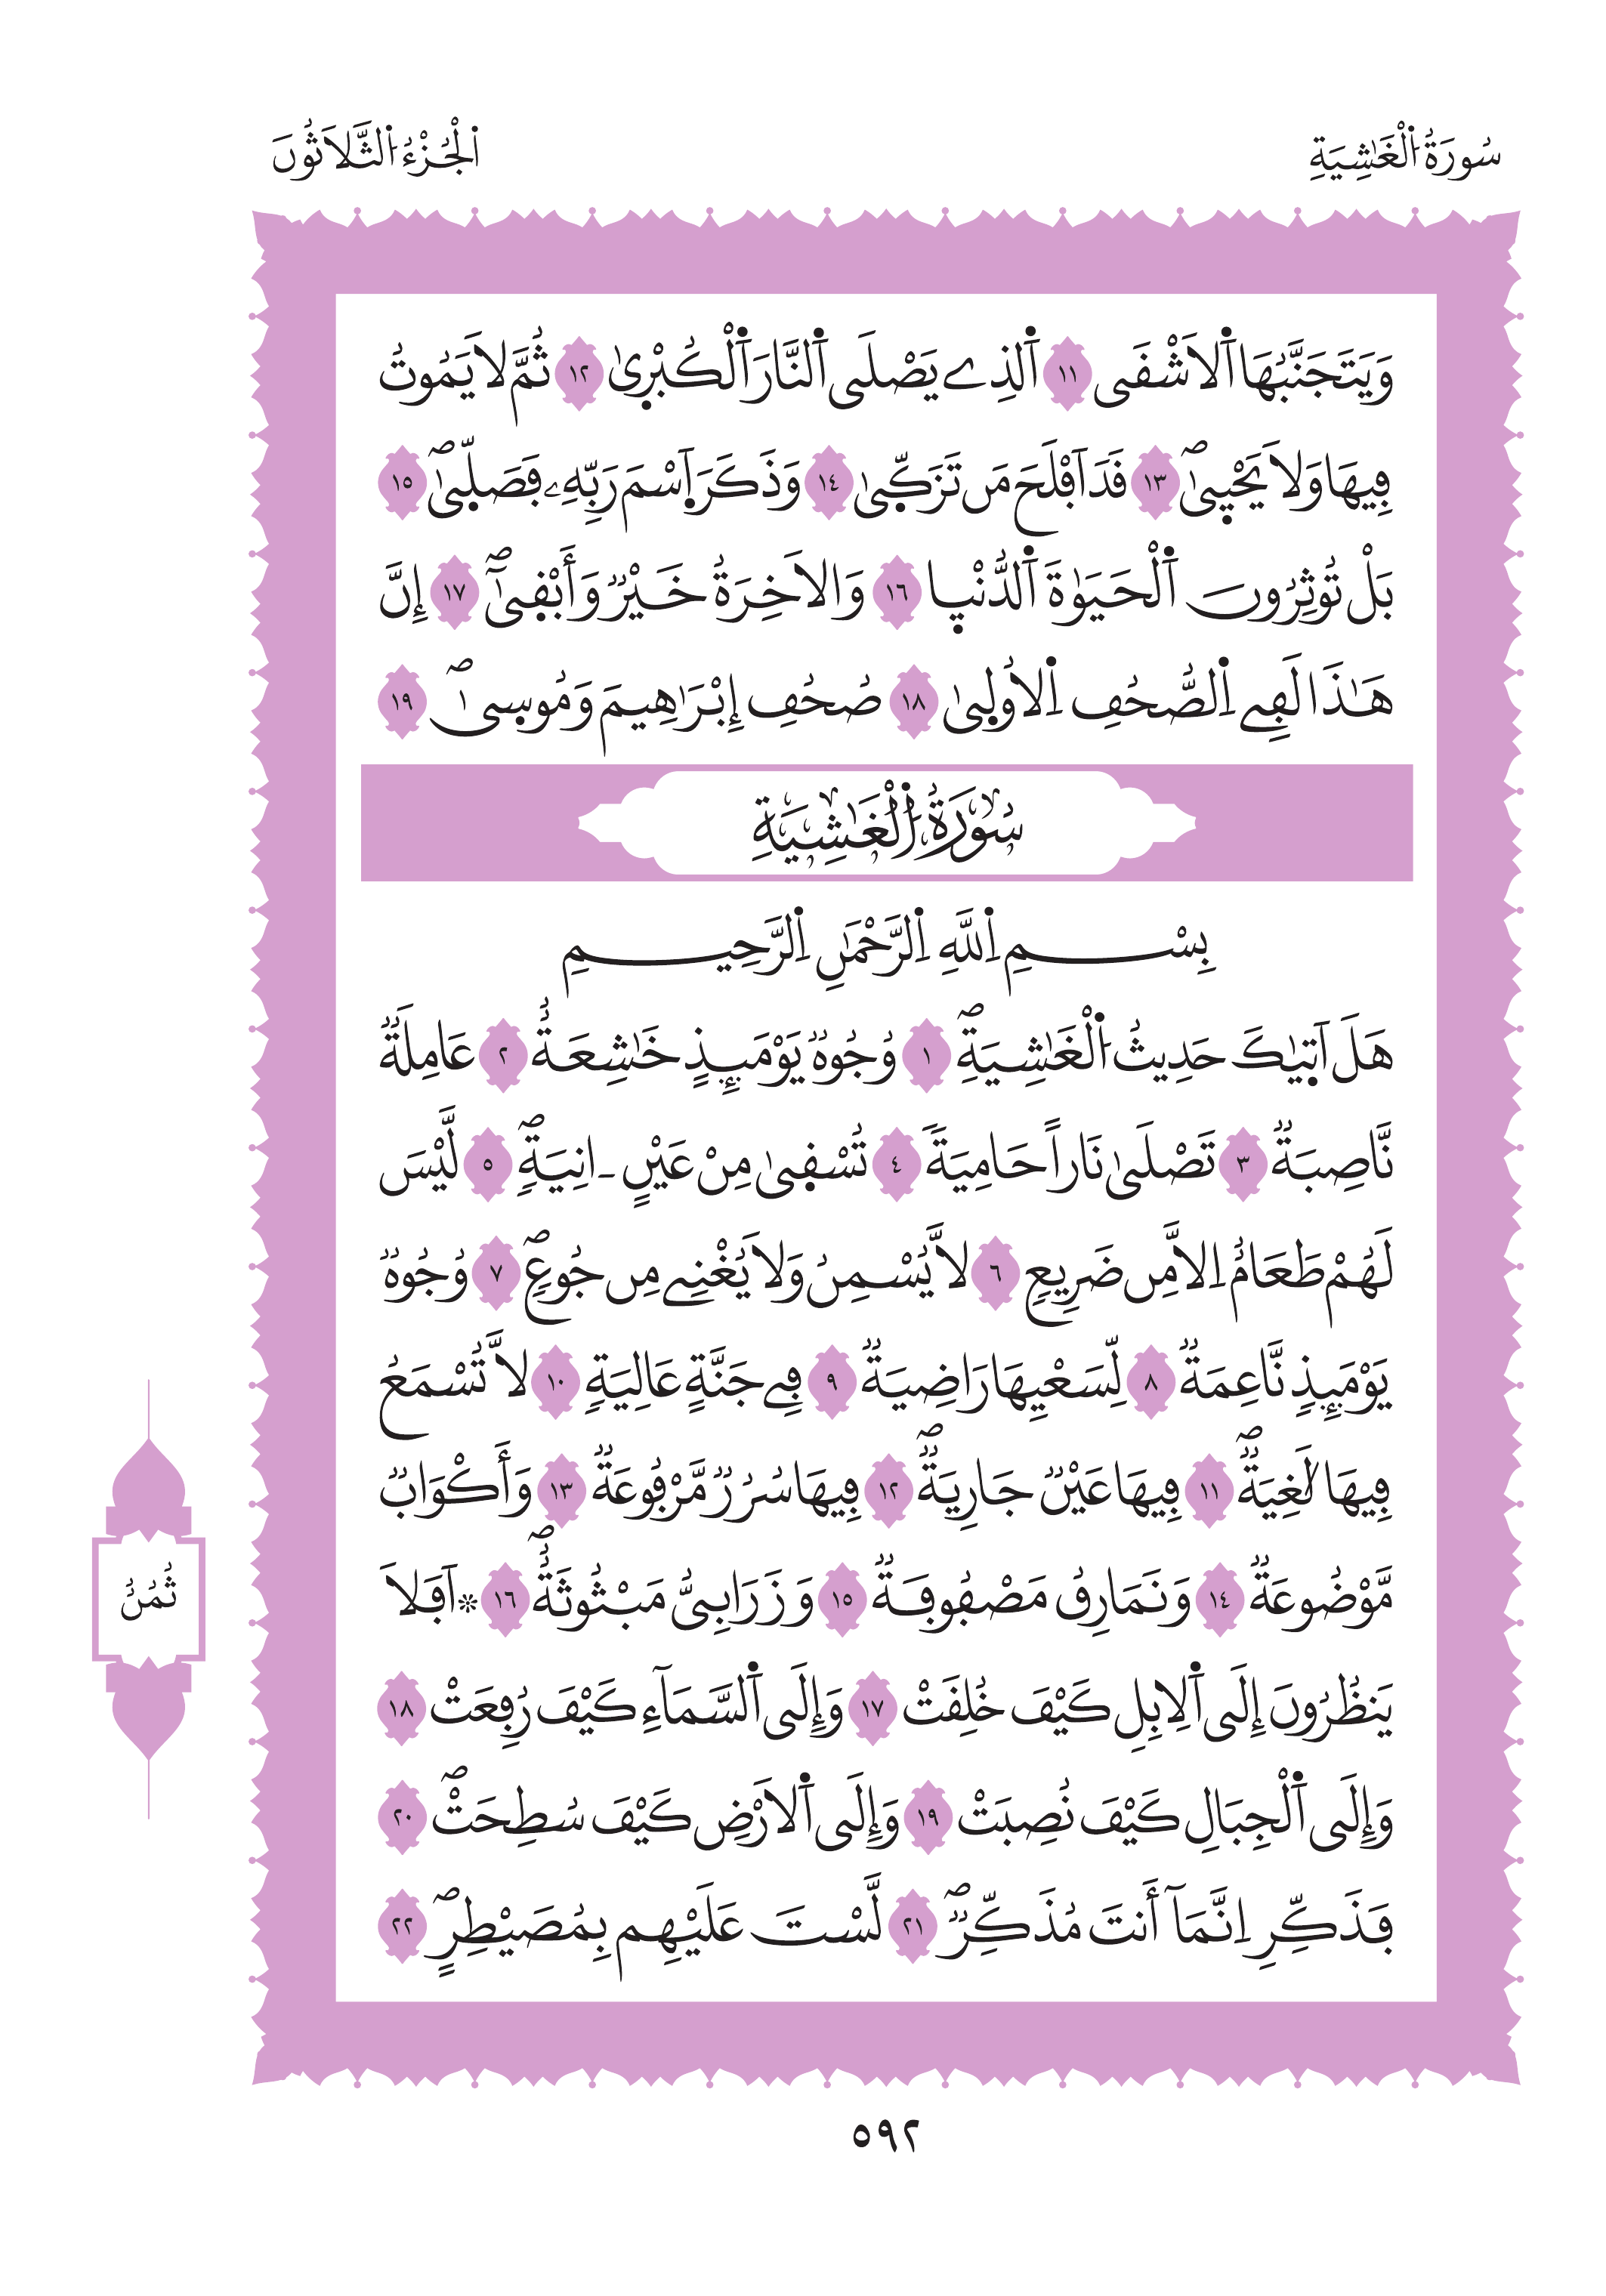 سُورَةُ اُ۬لْغَٰشِيَةِ
اَ۬لْجُزْءُ اُ۬لثَّلَاثُونَ
وَيَتَجَنَّبُهَا اَ۬لَاشْقَى ١١ اَ۬لذِے يَصْلَى اَ۬لنَّارَ اَ۬لْكُبْر۪ىٰ ١٢ ثُمَّ لَا يَمُوتُ
فِيهَا وَلَا يَحْي۪ىٰۖ ١٣ قَدَ اَفْلَحَ مَن تَزَكّ۪ىٰ ١٤ وَذَكَرَ اَ۪سْمَ رَبِّهِۦ فَصَلّ۪ىٰۖ ١٥
بَلْ تُوثِرُونَ اَ۬لْحَيَوٰةَ اَ۬لدُّنْي۪ا ١٦ وَالَاخِرَةُ خَيْرٞ وَأَبْق۪ىٰٓۖ ١٧ إِنَّ
هَٰذَا لَفِے اِ۬لصُّحُفِ اِ۬لُاول۪ىٰ ١٨ صُحُفِ إِبْرَٰهِيمَ وَمُوس۪ىٰۖ ١٩
سُورَةُ اُ۬لْغَٰشِيَةِ
بِسْمِ اِ۬للَّهِ اِ۬لرَّحْمَٰنِ اِ۬لرَّحِيمِ
هَلَ اَت۪يٰكَ حَدِيثُ اُ۬لْغَٰشِيَةِۖ ١ وُجُوهٞ يَوْمَئِذٍ خَٰشِعَةٌ ٢ عَامِلَةٞ
نَّاصِبَةٞ ٣ تَصْلَىٰ نَاراً حَامِيَةٗ ٤ تُسْق۪ىٰ مِنْ عَيْنٍ ـ انِيَةٖۖ ٥ لَّيْسَ
لَهُمْ طَعَامٌ اِلَّا مِن ضَرِيعٖ ٦ لَّا يُسْمِنُ وَلَا يُغْنِے مِن جُوعٖۖ ٧ وُجُوهٞ
يَوْمَئِذٖ نَّاعِمَةٞ ٨ لِّسَعْيِهَا رَاضِيَةٞ ٩ فِے جَنَّةٍ عَالِيَةٖ ١٠ لَّا تُسْمَعُ
فِيهَا لَٰغِيَةٞۖ ١١ فِيهَا عَيْنٞ جَارِيَةٞۖ ١٢ فِيهَا سُرُرٞ مَّرْفُوعَةٞ ١٣ وَأَكْوَابٞ
مَّوْضُوعَةٞ ١٤ وَنَمَارِقُ مَصْفُوفَةٞ ١٥ وَزَرَابِىُّ مَبْثُوثَةٌۖ ١٦ ۞ اَفَلَا
ثُمُنُ
يَنظُرُونَ إِلَى اَ۬لِابِلِ كَيْفَ خُلِقَتْ ١٧ وَإِلَى اَ۬لسَّمَآءِ كَيْفَ رُفِعَتْ ١٨
وَإِلَى اَ۬لْجِبَالِ كَيْفَ نُصِبَتْ ١٩ وَإِلَى اَ۬لَارْضِ كَيْفَ سُطِحَتْۖ ٢٠
فَذَكِّرِ اِنَّمَآ أَنتَ مُذَكِّرٞۖ ٢١ لَّسْتَ عَلَيْهِم بِمُصَيْطِرٍۖ ٢٢
٥٩٢